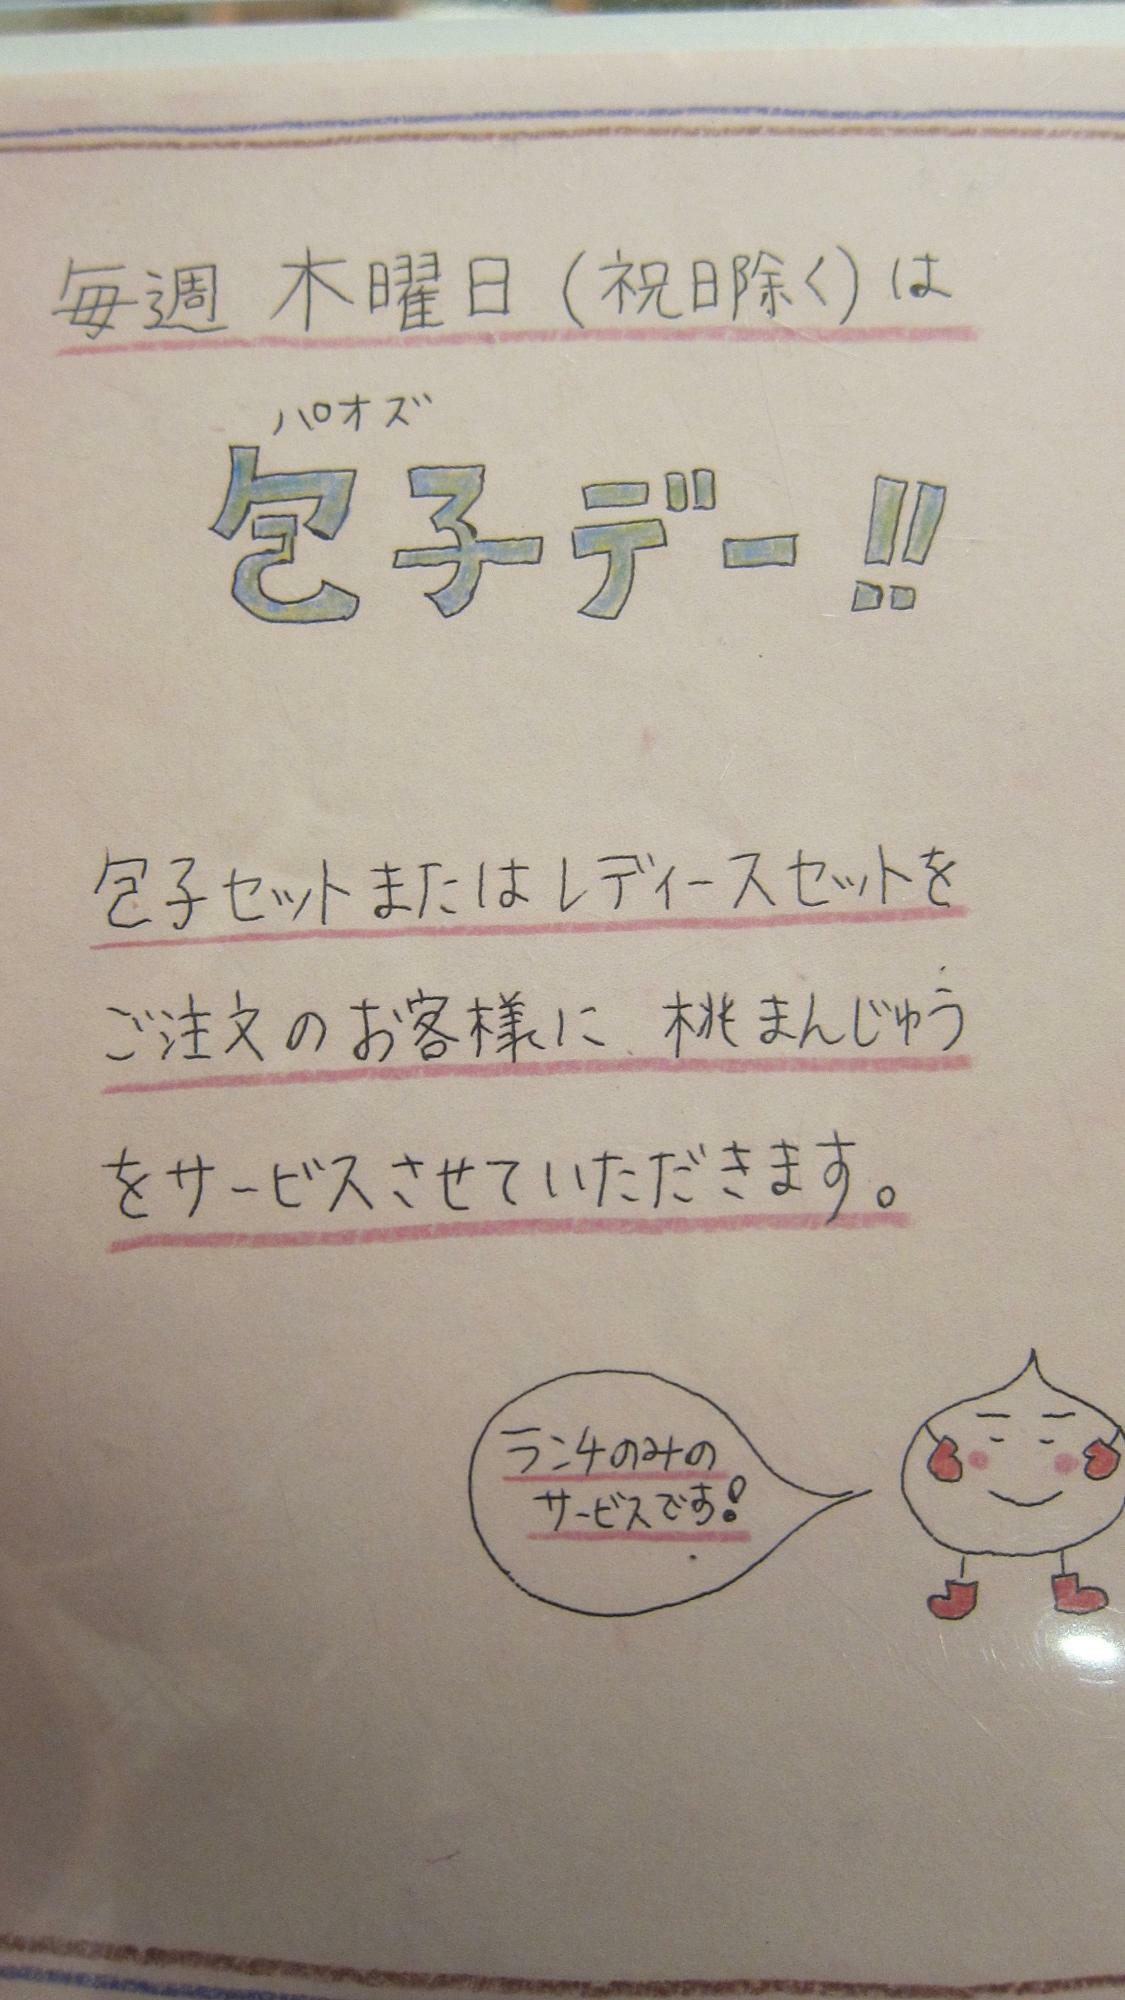 毎週 木曜日(祝日除く)は
パオズ
包子デー!!
包子セットまたはレディースセットを
ご注文のお客様に、桃まんじゅう
をサービスさせていただきます。
ランチのみの
サービスです!